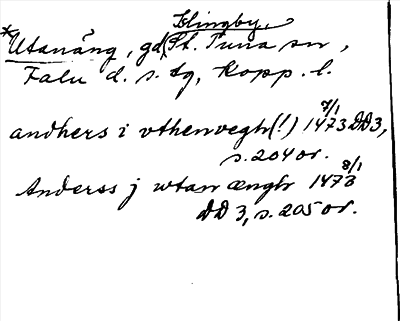 Slingby,
*Utanäng, gd, St. Tuna sn,
Falu d. s. tg, Kopp. l.
andhers i vthenvegh(!) 1473 7/1 DD3,
s. 204 or.
Anderss j wtan ængh 1473 8/1
DD 3, s. 205 or.